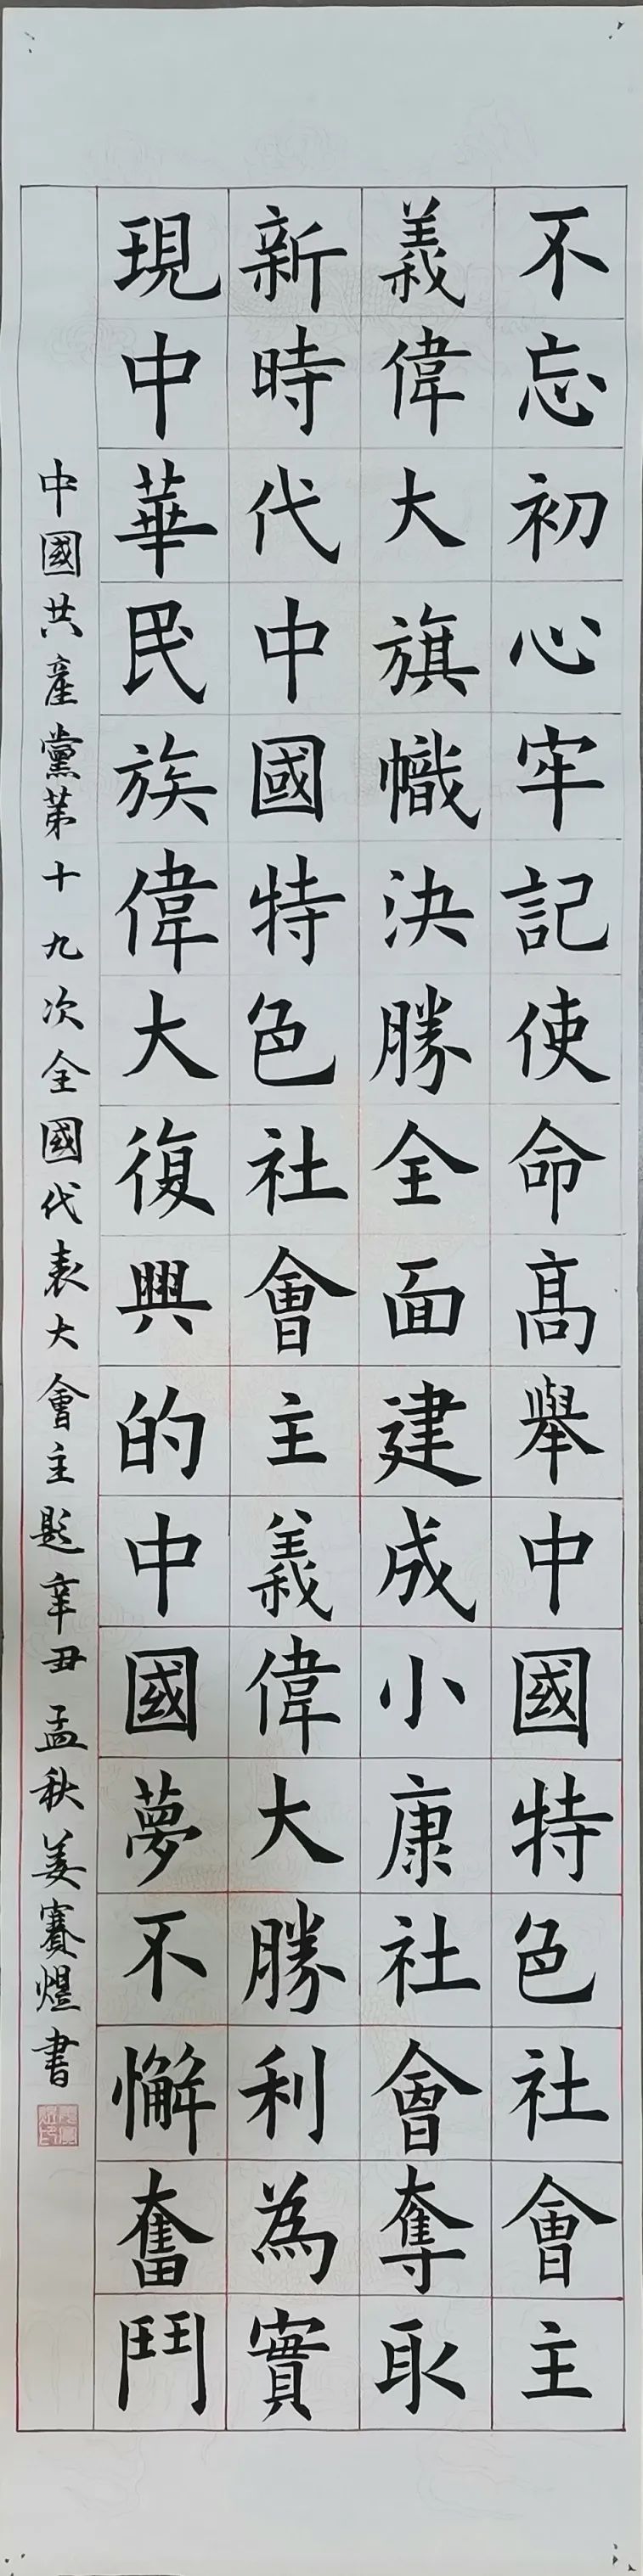 不忘初心牢記使命高舉中國特色社會主
義偉大旗幟決勝全面建成小康社會奪取
新時代中國特色社會主義偉大勝利為實
現中華民族偉大復興的中國夢不懈奮鬥
中國共產黨第十九次全國代表大會主題辛丑孟秋姜賽煜書